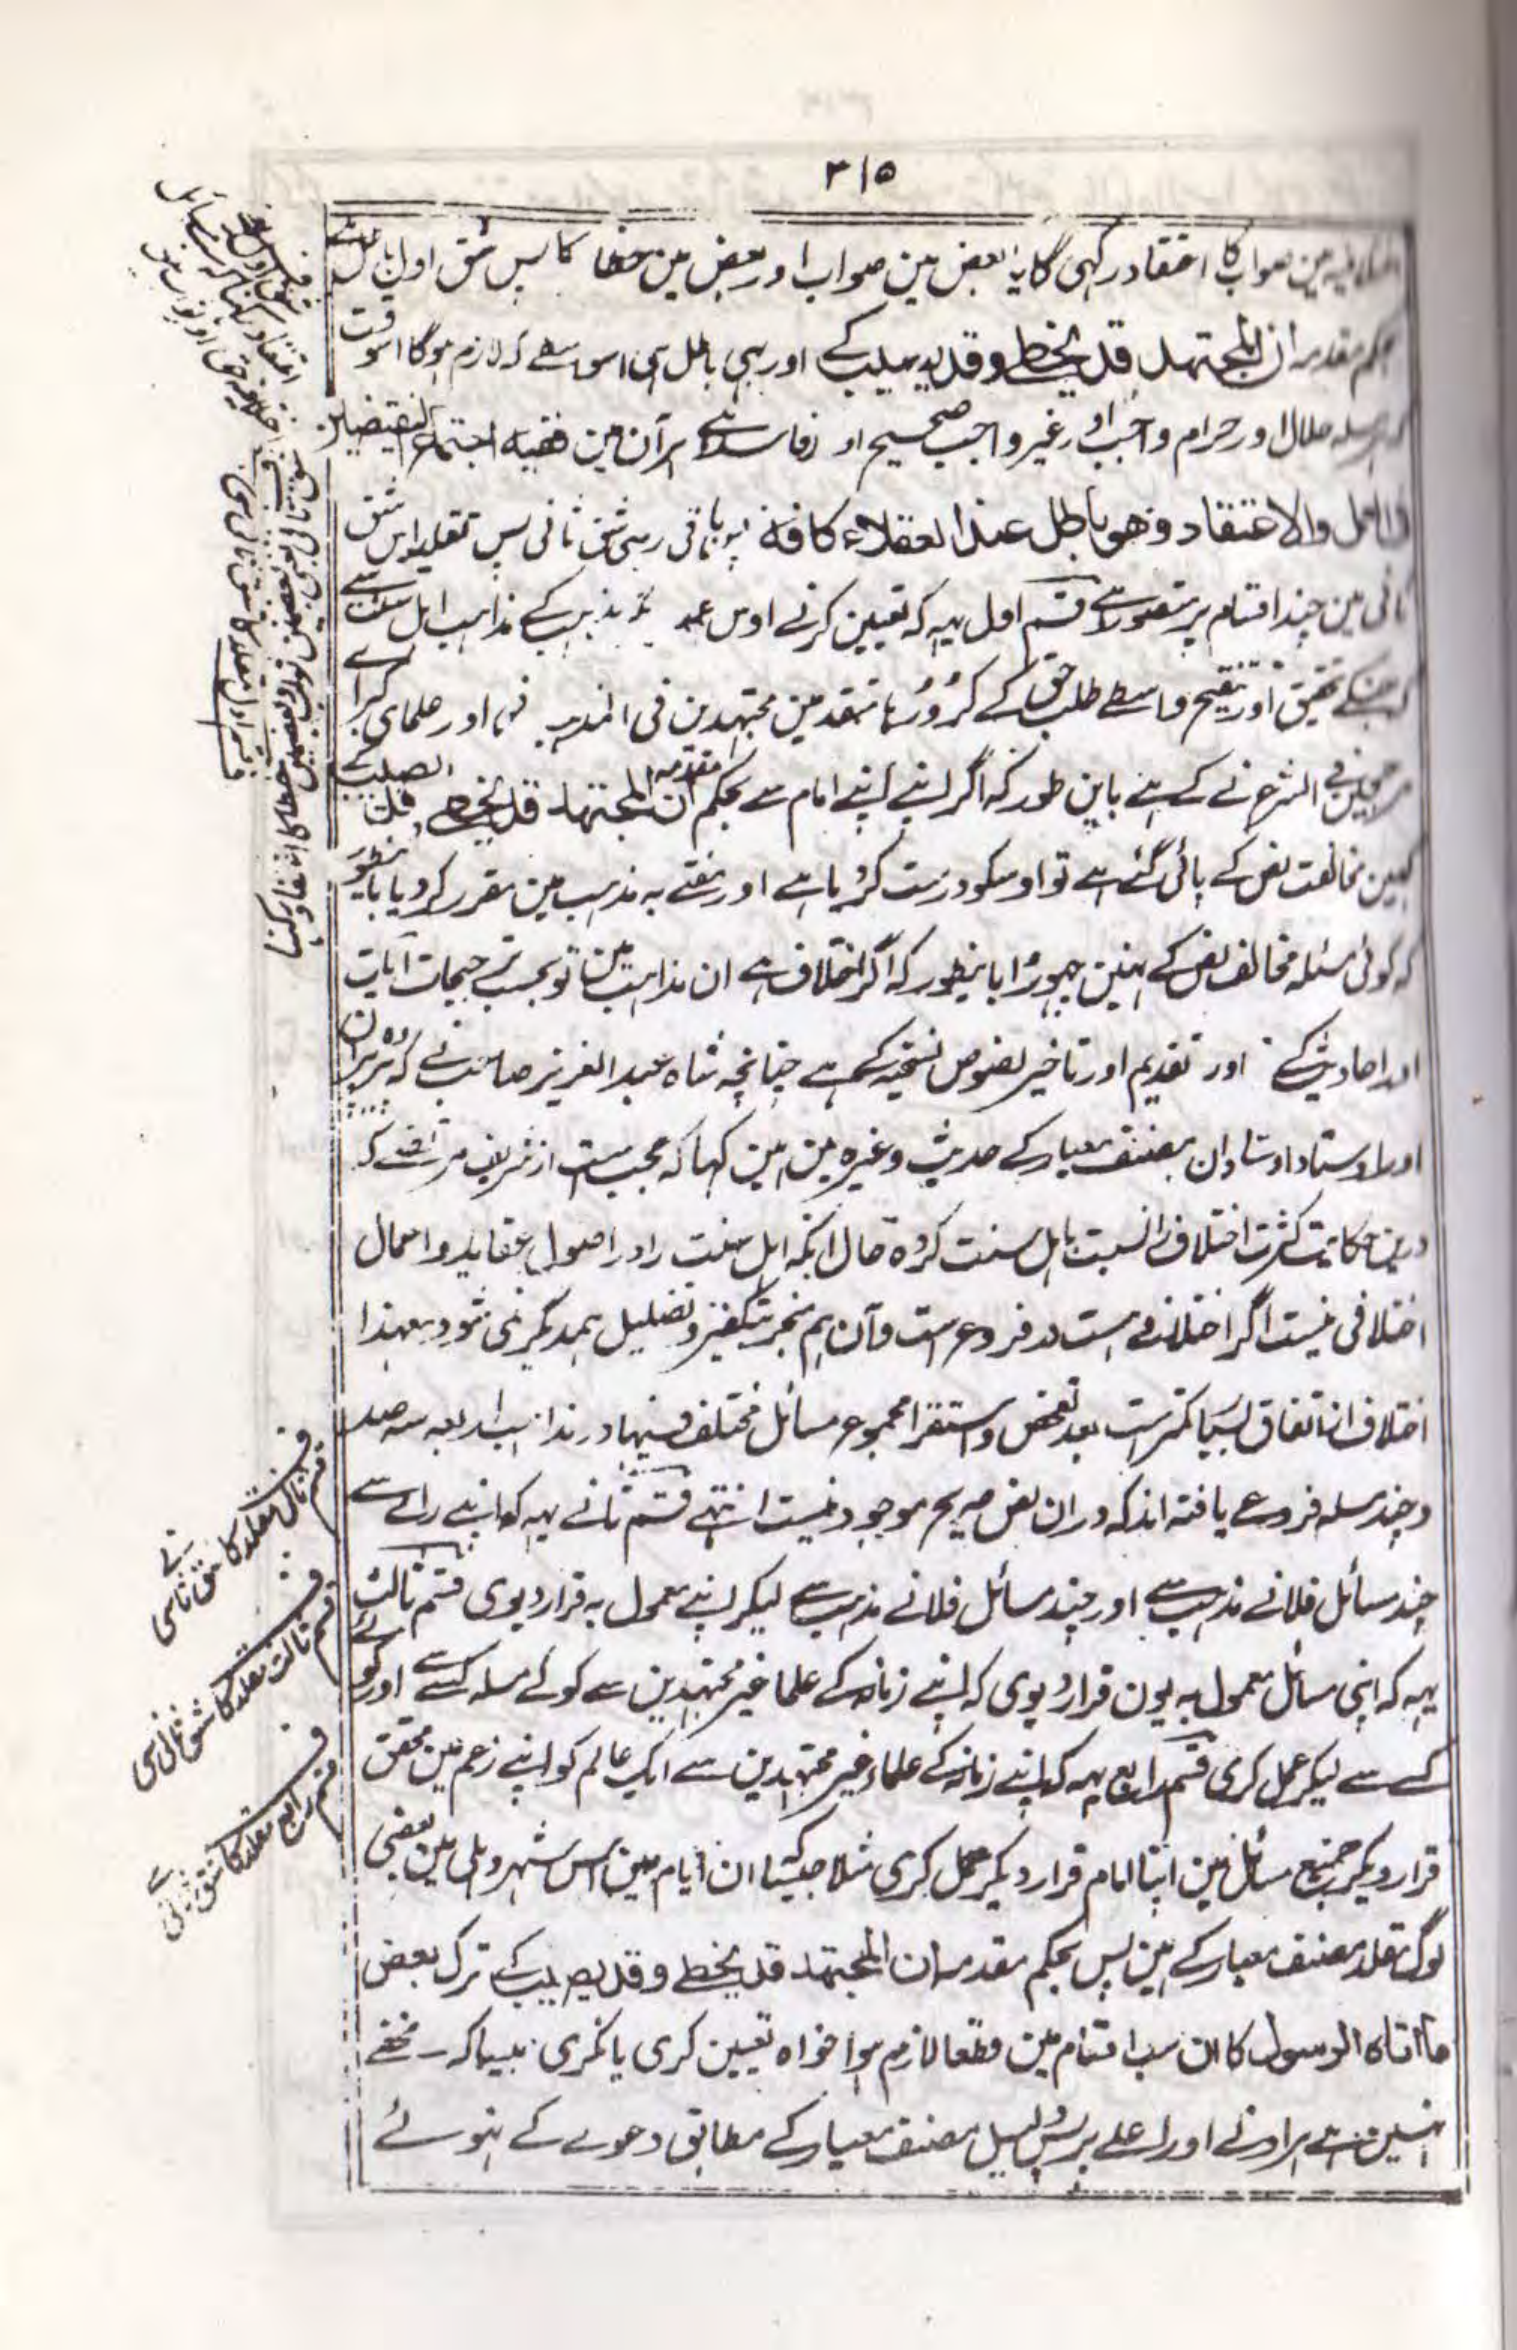 ۳۱۵
مین صواب کا اعتقاد رکہی گا یا بعض مین صواب اور بعض مین خطا کا پس شق اول باطل ہے
بحکم مقدمہ ان المجتهد قد یخطی وقد یصیب کے اور یہی باطل ہی اسواسطے کہ لازم ہوگا اسوقت
مسلہ حلال اور حرام واجب اور غیر واجب صحیح اور فاسد ہے ہر آن مین ففیہ اجتماع النقیضین
والاعتقاد وهو باطل عند العقلاء کافة باقی رہی شق ثانی پس تقلید اس شق
ثانی مین چند اقسام پر متصور ہے قسم اول یہہ کہ تعیین کرنے اوس مذہب کے مذاہب اہل سنت سے
کہ جسکے تحقیق اور تنقیح واسطے طلب حق کے کرورہا متقدمین مجتہدین فی المذہب نے اور علمای
فی الشرع نے کے ہے باین طور کہ اگر اپنے اپنے امام سے بحکم مقدمہ ان المجتهد قد یخطی وقد یصیب کے
کہین مخالفت نص کے پائی گئی ہے تو اوسکو درست کردیا ہے اور مفتے بہ مذہب مین مقرر کردیا بانیطور
کہ کوئی مسئلہ مخالف نص کے نہین چہوڑا بانیطور کہ اگر اختلاف ہے ان مذاہب مین تو بحسب ترجیحات آیات
اور احادیث کے اور تقدیم اور تاخیر نصوص نسخیہ کے ہے چنانچہ شاہ عبد العزیز صاحب نے کہ
اور اوستاد اوستادان مصنف معیار کے حدیث وغیرہ مین ہین کہا کہ عجب ست از شریف مرتضے کہ
درین حکایت کثرت اختلاف را نسبت باہل سنت کردہ حال آنکہ اہل سنت را در اصول عقاید و اعمال
اختلافی نیست اگر اختلافے ہست در فروع ست و آن ہم منجر بتکفیر و تضلیل ہمدیگر نمی شود و معہذا
اختلاف از اتفاق بسیار کمترست بعد تفحص و استقرا مجموع مسائل مختلف فیہا در مذاہب اربعہ سہ صد
و چند مسلہ فروعے یافتہ اند کہ دران نص صریح موجود نیست انتہے قسم ثانے یہہ کہ اپنے رائے سے
چند مسائل فلانے مذہب سے اور چند مسائل فلانے مذہب سے لیکر اپنے معمول بہ قرار دیوی قسم ثالث
یہہ کہ اپنی مسائل معمول بہ یون قرار دیوی کہ اپنے زمانہ کے علما غیر مجتہدین سے کوئے مسلہ کسے سے اور کوئے
کسے سے لیکر عمل کری قسم رابع یہہ کہ اپنے زمانہ کے علماء غیر مجتہدین سے ایک عالم کو اپنے زعم مین محقق
قرار دیکر جمیع مسائل مین اپنا امام قرار دیکر عمل کری مثلا جیسا کہ ان ایام مین اس شہر دہلی مین بعضی
لوگ مقلد مصنف معیار کے ہین پس بحکم مقدمہ ان المجتهد قد یخطی وقد یصیب کے ترک بعض
ما اتاہ الرسول کا ان سب اقسام مین قطعا لازم ہوا خواہ تعیین کری یا نکری جیسا کہ مخفے
نہین ہے ہر ادنے اور اعلے پر پس دلیل مصنف معیار کے مطابق دعوے کے نہوئے
قسم اول مقلد کا شق ثانی سی
ف
قسم ثانی مقلد کا شق ثانی سی
ف
قسم ثالث مقلد کا شق ثانی سی
ف
قسم رابع مقلد کا شق ثانی سے